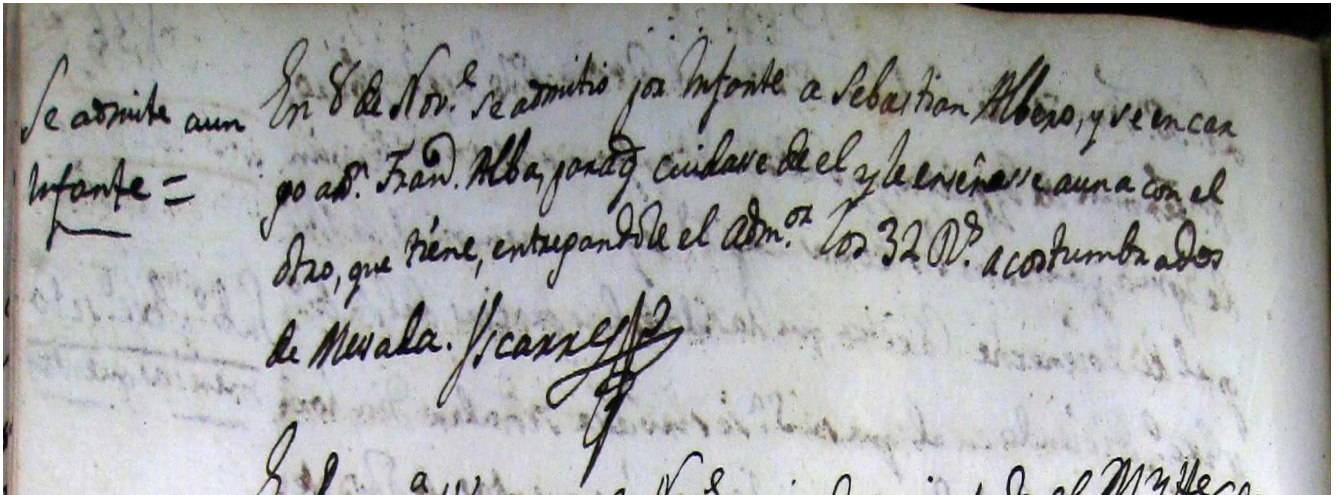 Se admite a un
Infante =
En 8 de Nov.e se admitio por Infante a Sebastian Albero, y se encar
go a D.n Fran.co Alba, para q cuidasse de el y le enseñasse a una con el
otro, que tiene, entregandole el Adm.or los 32 R.s acostumbrados
de Mesada. Yscarrez